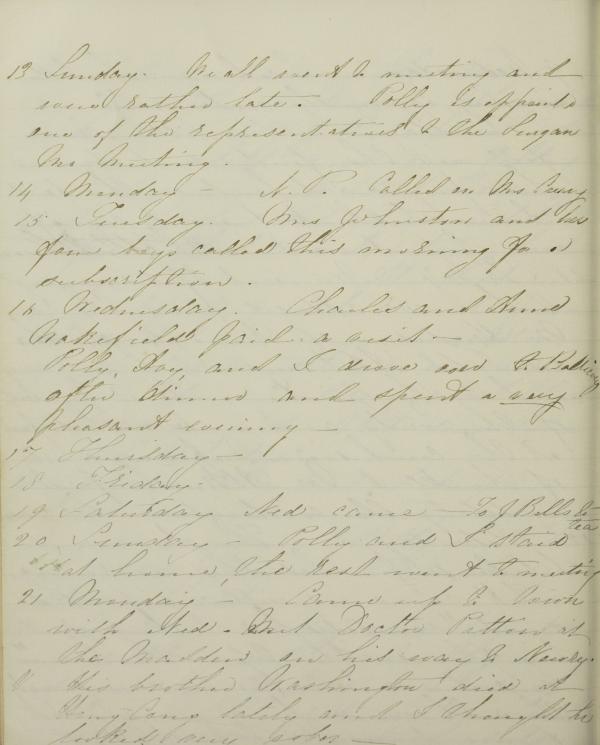 13 Sunday. We all went to meeting and
were rather late. Polly is appointed
one of the representatives to the Lurgan
Mo Meeting.
14 Monday — N. P. Called on Mrs
15 Tuesday. Mrs Johnston and her
four boys called this morning for a
subscription.
16 Wednesday. Charles and Anne
Wakefield paid a visit —
Polly, and I drove over to
after dinner and spent a very
pleasant evening —
17 Thursday —
18 Friday.
19 Saturday Ned came — To J Bells to
tea
20 Sunday — Polly and I staid
at home, the rest went to meeting
21 Monday — Came up to town
with Ned. Met Doctor Patton at
the Malden on his way to Newry.
His brother Washington died at
Hong Cong lately and I thought he
looked very